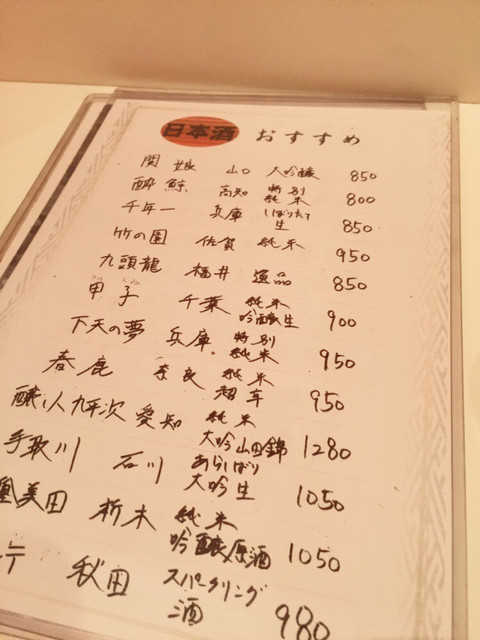 日本酒 おすすめ
関娘 山口 大吟醸 850
酔鯨 高知 特別純米 800
千年一 兵庫 しぼりたて生 850
竹の園 佐賀 純米 950
九頭龍 福井 逸品 850
甲子 千葉 純米吟醸生 900
下天の夢 兵庫 特別純米 950
春鹿 奈良 純米超辛 950
醸し人九平次 愛知 純米大吟山田錦 1280
手取川 石川 あらばしり大吟生 1050
凰美田 栃木 純米吟醸原酒 1050
秋田 スパークリング酒 980